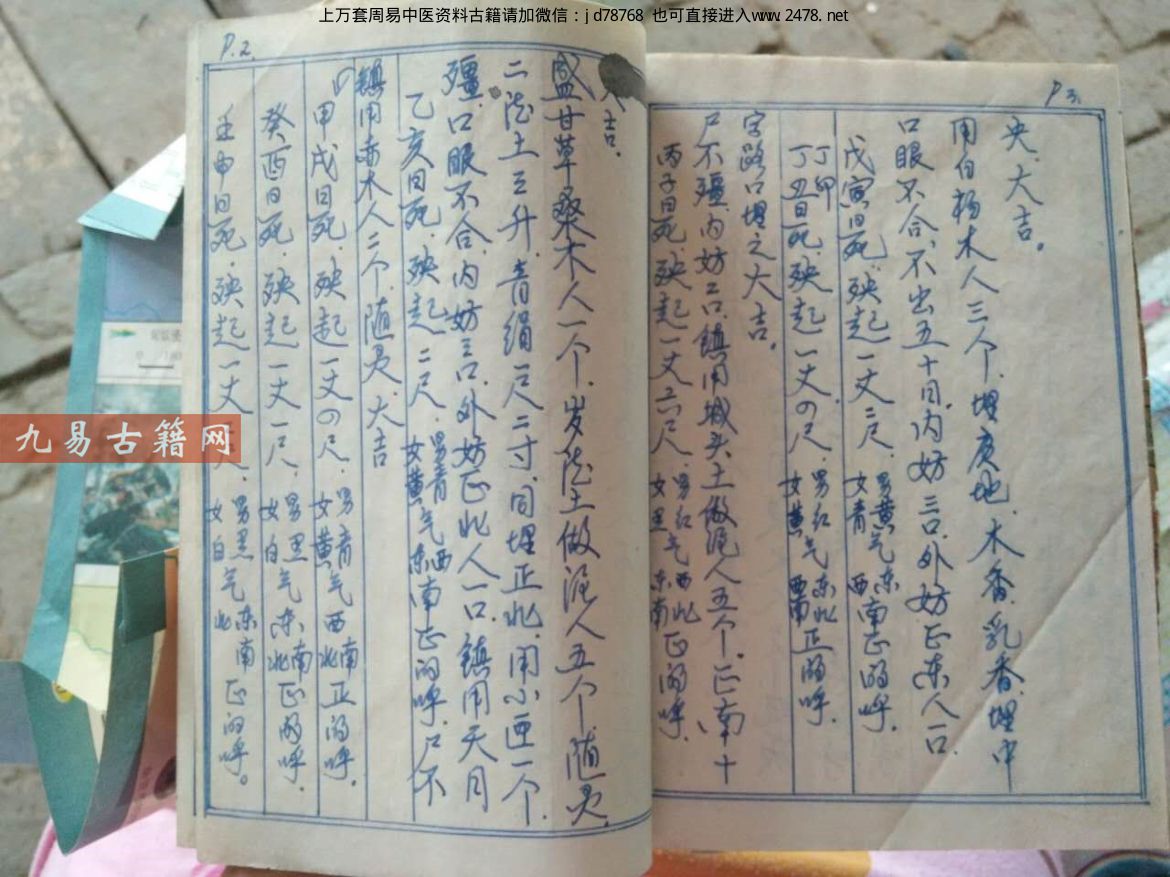 上万套周易中医资料古籍请加微信：jd78768 也可直接进入www.2478.net
P.2.
壬申日死，殃起一丈 尺，男黑女白气东南北正的呼。
癸酉日死，殃起一丈一尺，男黑女白气东南北正的呼。
甲戌日死，殃起一丈四尺，男青女黄气西南北正的呼。
镇用赤木人二个，随灵，大吉
乙亥日死，殃起二尺，男青女黄气西东南正的呼，尸不
殭，口眼不合，内妨三口，外妨正北人一口，镇用天月
二德土三升，青绢一尺二寸，同埋正北，用小匣一个，
盛甘草桑木人一个，岁德土做泥人五个，随灵，
大吉。
P3.
丙子日死，殃起一丈六尺，男红女黑气西北东南正的呼。
尸不殭，内妨二口，镇用城头土做泥人五个，正南十
字路口埋之大吉。
丁卯
丁丑日死，殃起一丈四尺，男红女黄气东北西南正的呼。
戊寅日死，殃起一丈二尺，男黄女青气东西南正的呼。
口眼不合，不出五十日，内妨三口，外妨正东人一口，
用白杨木人三个，埋庚地，木香，乳香，埋中
央，大吉。
九易古籍网